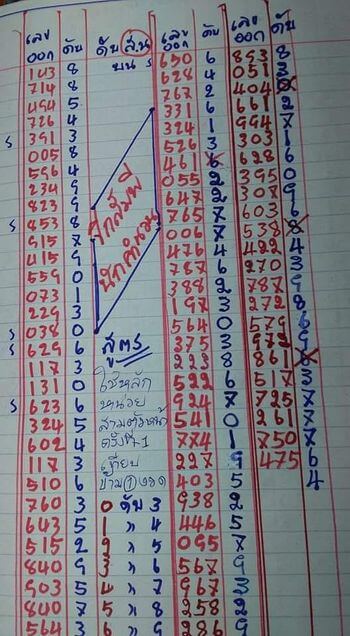 เลข ออก ดับ
143 8
714 8
494 5
726 4
ร 391 3
005 8
596 4
234 9
823 9
ร 853 8
915 7
415 9
559 0
073 1
229 3
ร 038 0
ร 629 6
117 3
131 0
ร 623 6
324 5
602 4
117 3
510 6
760 3
643 5
515 2
840 9
903 5
840 7
564 3
ดับ ส่วน
บน ร
นักคำนวน
สูตร
ใช้หลัก
หน่วย
สามตัวหน้า
เทียบ
0 ดับ 3
1 " 4
2 " 5
3 " 6
4 " 7
5 " 8
6 " 9
เลข ออก ดับ
650 6
628 4
767 2
331 6
324 1
526 3
461 6
055 2
647 2
765 7
006 7
476 4
787 6
388 2
197 3
564 0
375 3
223 8
522 6
924 7
541 0
774 1
227 9
403 5
938 2
446 5
095 7
567 9
967 3
258 2
286 9
เลข ออก ดับ
893 8
051 3
404 0
661 2
994 7
303 1
628 6
395 0
307 9
603 6
538 8
422 4
270 3
787 9
272 8
579 6
972 9
861 8
517 3
725 7
261 7
750 7
475 6
4